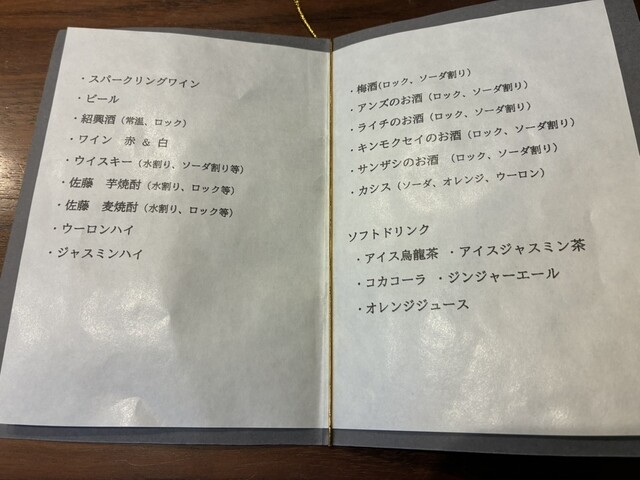 ・スパークリングワイン
・ビール
・紹興酒（常温、ロック）
・ワイン　赤 & 白
・ウイスキー（水割り、ソーダ割り等）
・佐藤　芋焼酎（水割り、ロック等）
・佐藤　麦焼酎（水割り、ロック等）
・ウーロンハイ
・ジャスミンハイ
・梅酒(ロック、ソーダ割り）
・アンズのお酒（ロック、ソーダ割り）
・ライチのお酒（ロック、ソーダ割り）
・キンモクセイのお酒（ロック、ソーダ割り）
・サンザシのお酒　（ロック、ソーダ割り）
・カシス（ソーダ、オレンジ、ウーロン）
ソフトドリンク
・アイス烏龍茶　・アイスジャスミン茶
・コカコーラ　・ジンジャーエール
・オレンジジュース